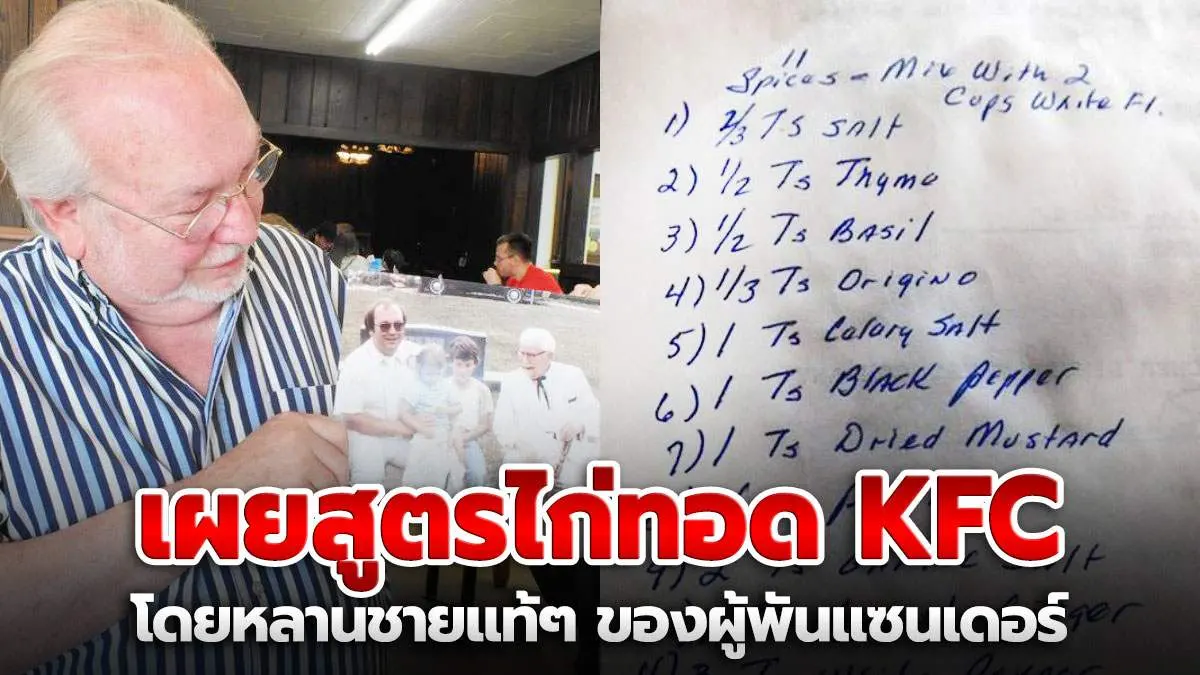 11
Spices - Mix With 2
Cups White Fl.
1) 2/3 Ts Salt
2) 1/2 Ts Thyme
3) 1/2 Ts Basil
4) 1/3 Ts Origino
5) 1 Ts Celary Salt
6) 1 Ts Black Pepper
7) 1 Ts Dried Mustard
9) 2 Ts Salt
เผยสูตรไก่ทอด KFC
โดยหลานชายแท้ๆ ของผู้พันแซนเดอร์